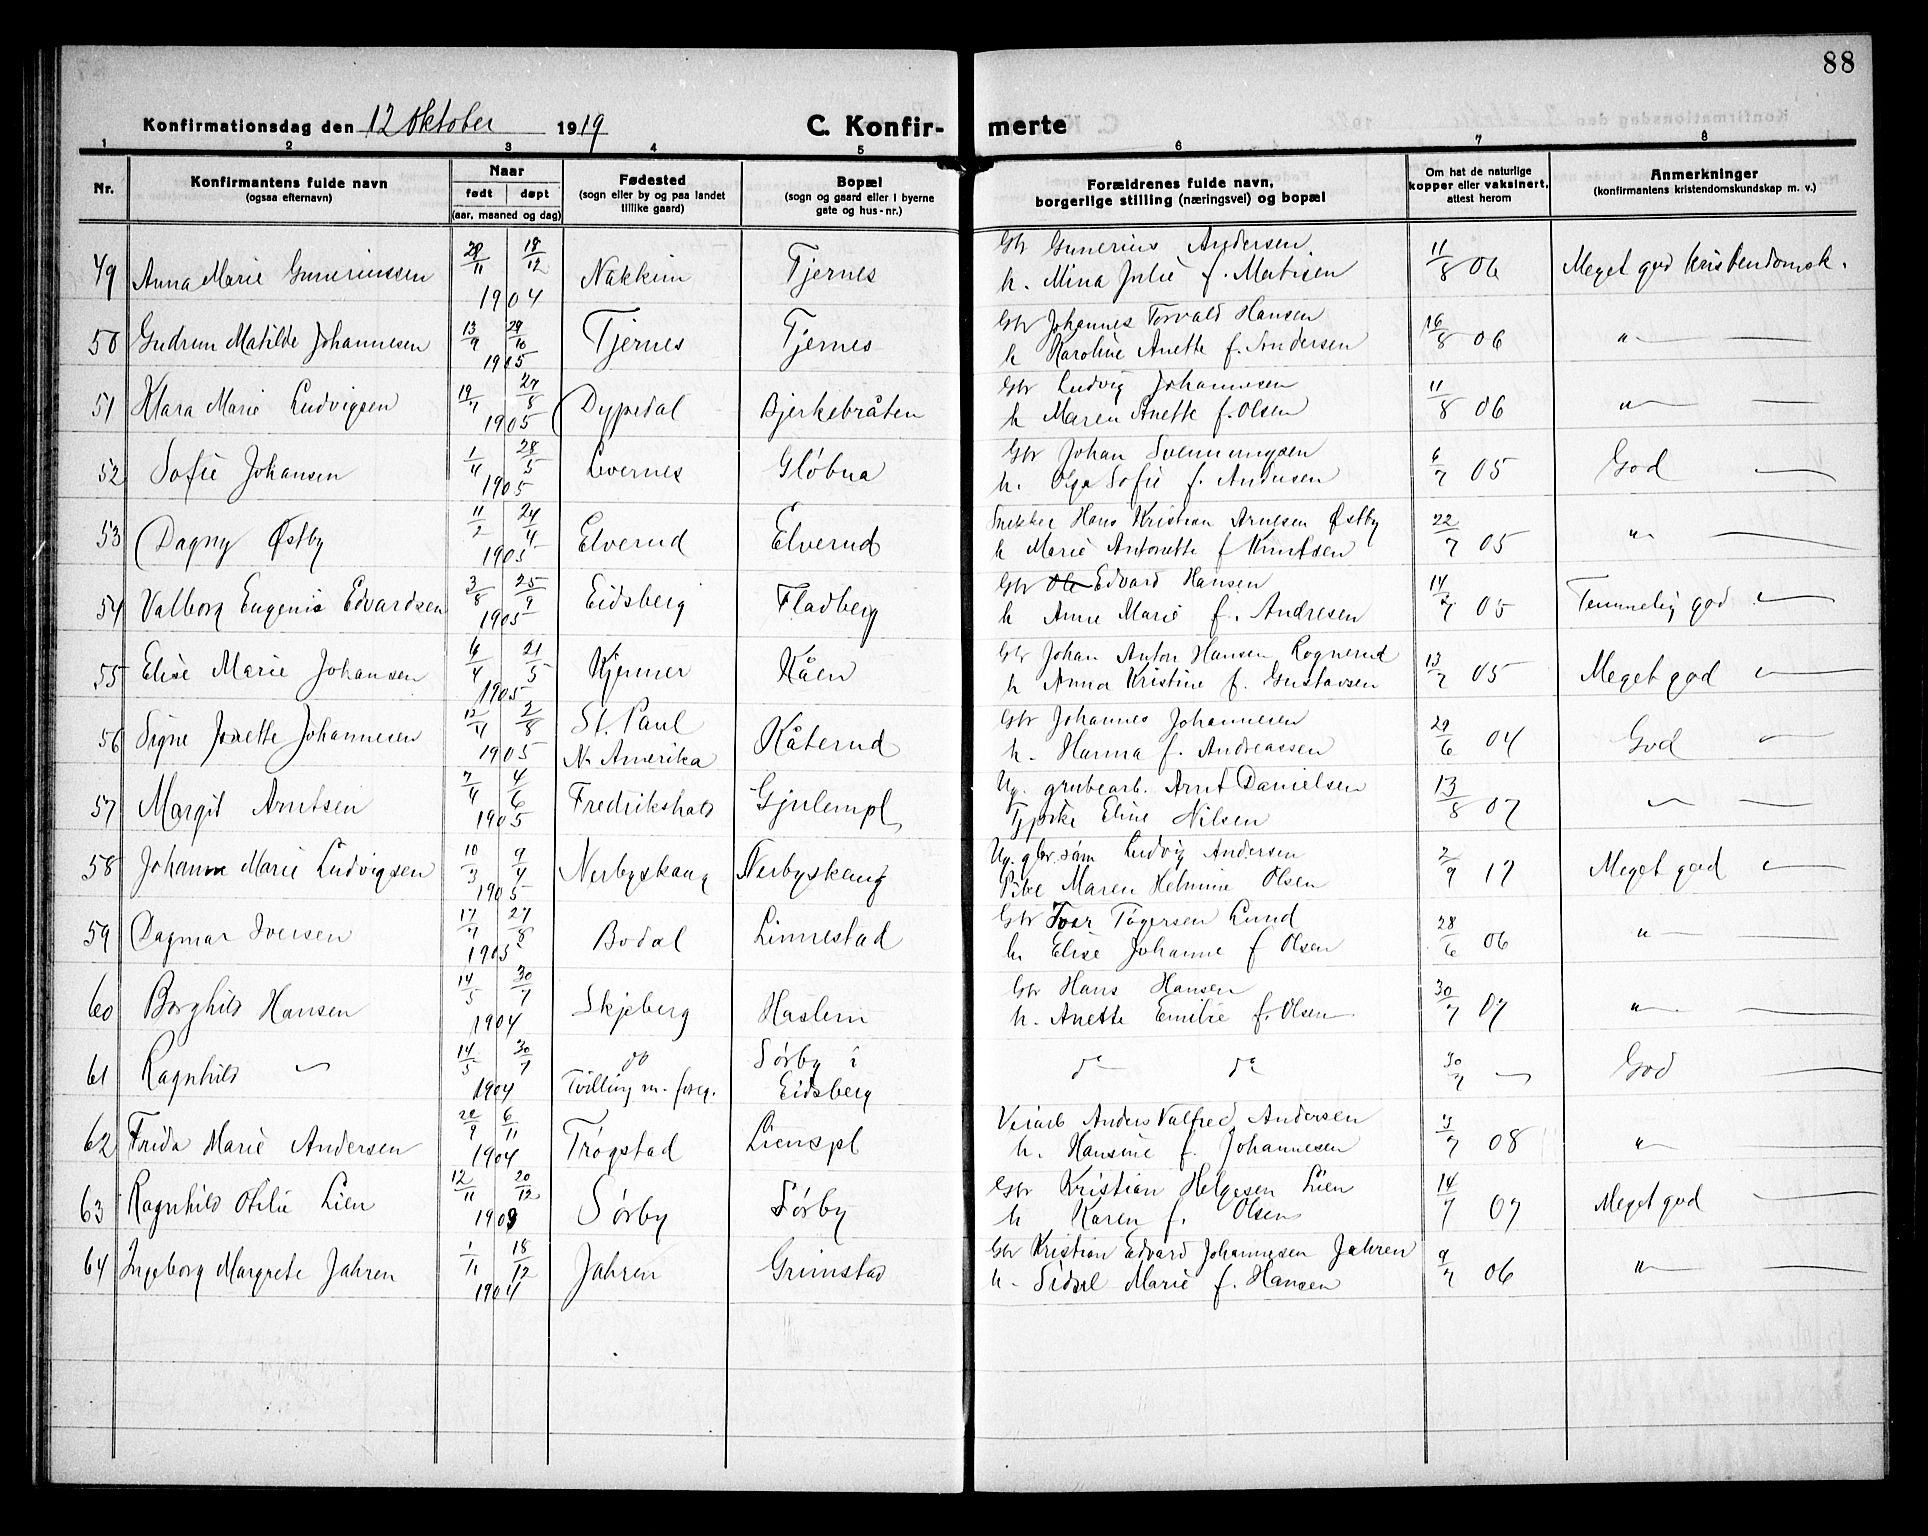 88
Konfirmationsdag den 12 Oktober 1919
C. Konfirmerte
1 2 3 4 5 6 7 8
Nr.
Konfirmantens fulde navn
(ogsaa efternavn)
Naar
født døpt
(aar, maaned og dag)
Fødested
(sogn eller by og paa landet
tillike gaard)
Bopæl
(sogn og gaard eller i byerne
gate og hus-nr.)
Forældrenes fulde navn,
borgerlige stilling (næringsvei) og bopæl
Om hat de naturlige
kopper eller vaksinert,
attest herom
Anmerkninger
(konfirmantens kristendomskundskap m. v.)
Gbr Gunerius Andersen
49 Anna Marie Gunerinssen 29/11 18/12 1904 Nakkim Tjernes h. Mina Julie f. Matisen 11/8 06 Meget god Kristendomsk.
Gbr Johannes Torvald Hansen
50 Gudrun Matilde Johannesen 13/9 29/10 1905 Tjernes Tjernes h Karoline Anette f. Andersen 16/8 06 " —
Gbr Ludvig Johannesen
51 Klara Marie Ludvigsen 19/7 27/8 1905 Dypedal Bjerkebråten h Maren Anette f. Olsen 11/8 06 " —
Gbr Johan Svenningsen
52 Sofie Johansen 1/4 28/5 1905 Levernes Gløbua h. Olga Sofie f. Andersen 6/7 05 God —
Snekker Hans Kristian Arnesen Østby
53 Dagny Østby 11/2 24/4 1905 Elverud Elverud h Marie Antonette f Knutsen 22/7 05 " —
Gbr Edvard Hansen
54 Valborg Eugenie Edvardsen 3/8 25/9 1905 Eidsberg Fladberg h Anne Marie f. Andresen 14/7 05 Temmelig god —
Gbr Johan Anton Hansen Rognerud
55 Elise Marie Johansen 6/4 21/5 1905 Kjenner Kåen h Anna Kristine f. Gustavsen 13/7 05 Meget god —
Gbr Johannes Johannesen
56 Signe Josette Johannesen 12/4 2/8 1905 St. Paul N. Amerika Kåterud h. Hanna f. Andreassen 29/6 04 God —
Ug. grubearb. Arnt Danielsen
57 Margit Arntsen 7/4 4/6 1905 Fredrikshald Gjulempl Eline Nilsen 13/8 07 " —
Ug. gbr. søn Ludvig Andersen
58 Johanne Marie Ludvigsen 10/3 9/4 1905 Nerbyskaug Nerbyskaug Pike Maren Helmine Olsen 2/9 17 Meget god —
Gbr Ivar Tøgersen Lund
59 Dagmar Iversen 17/7 27/8 1905 Bodal Linnestad h. Elise Johanne f Olsen 28/6 06 " —
Gbr Hans Hansen
60 Borghild Hansen 14/5 30/7 1904 Skjeberg Haslem h. Anette Emilie f. Olsen 30/7 07 " —
61 Ragnhild " 14/5 30/7 1904 do Tvilling m. foreg. Sørby i Eidsberg do do 30/7 " God —
Veiarb Anders Valfred Andersen
62 Frida Marie Andersen 22/9 6/11 1904 Trøgstad Lienspl h. Hansine f. Johannesen 3/7 08 " —
Gbr Kristian Helgesen Lien
63 Ragnhild Otilie Lien 12/11 20/12 1903 Sørby Sørby h Karen f. Olsen 14/7 07 Meget god —
Gbr Kristian Edvard Johannesen Jahren
64 Ingeborg Margrete Jahren 1/11 18/12 1904 Jahren Grimstad h. Sidsel Marie f. Hansen 9/7 06 " —